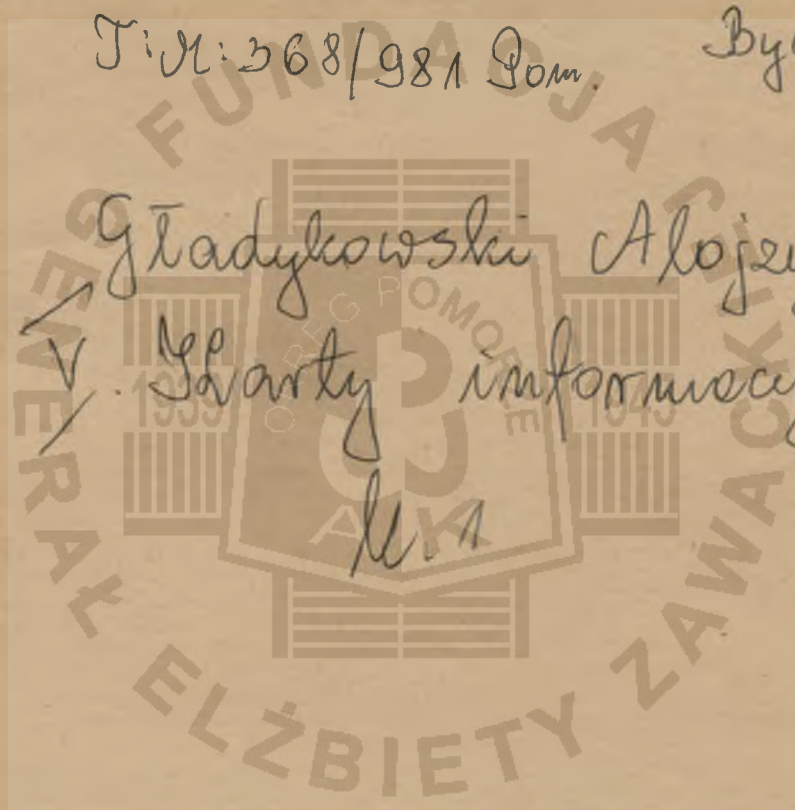 T: M: 368/981 Pom. By
Gładykowski Alojzy
V. Karty informacy
K. 1
FUNDACJA GENERAŁ ELŻBIETY ZAWACKIEJ
OKRĘG POMORZE
1939 1945
AK